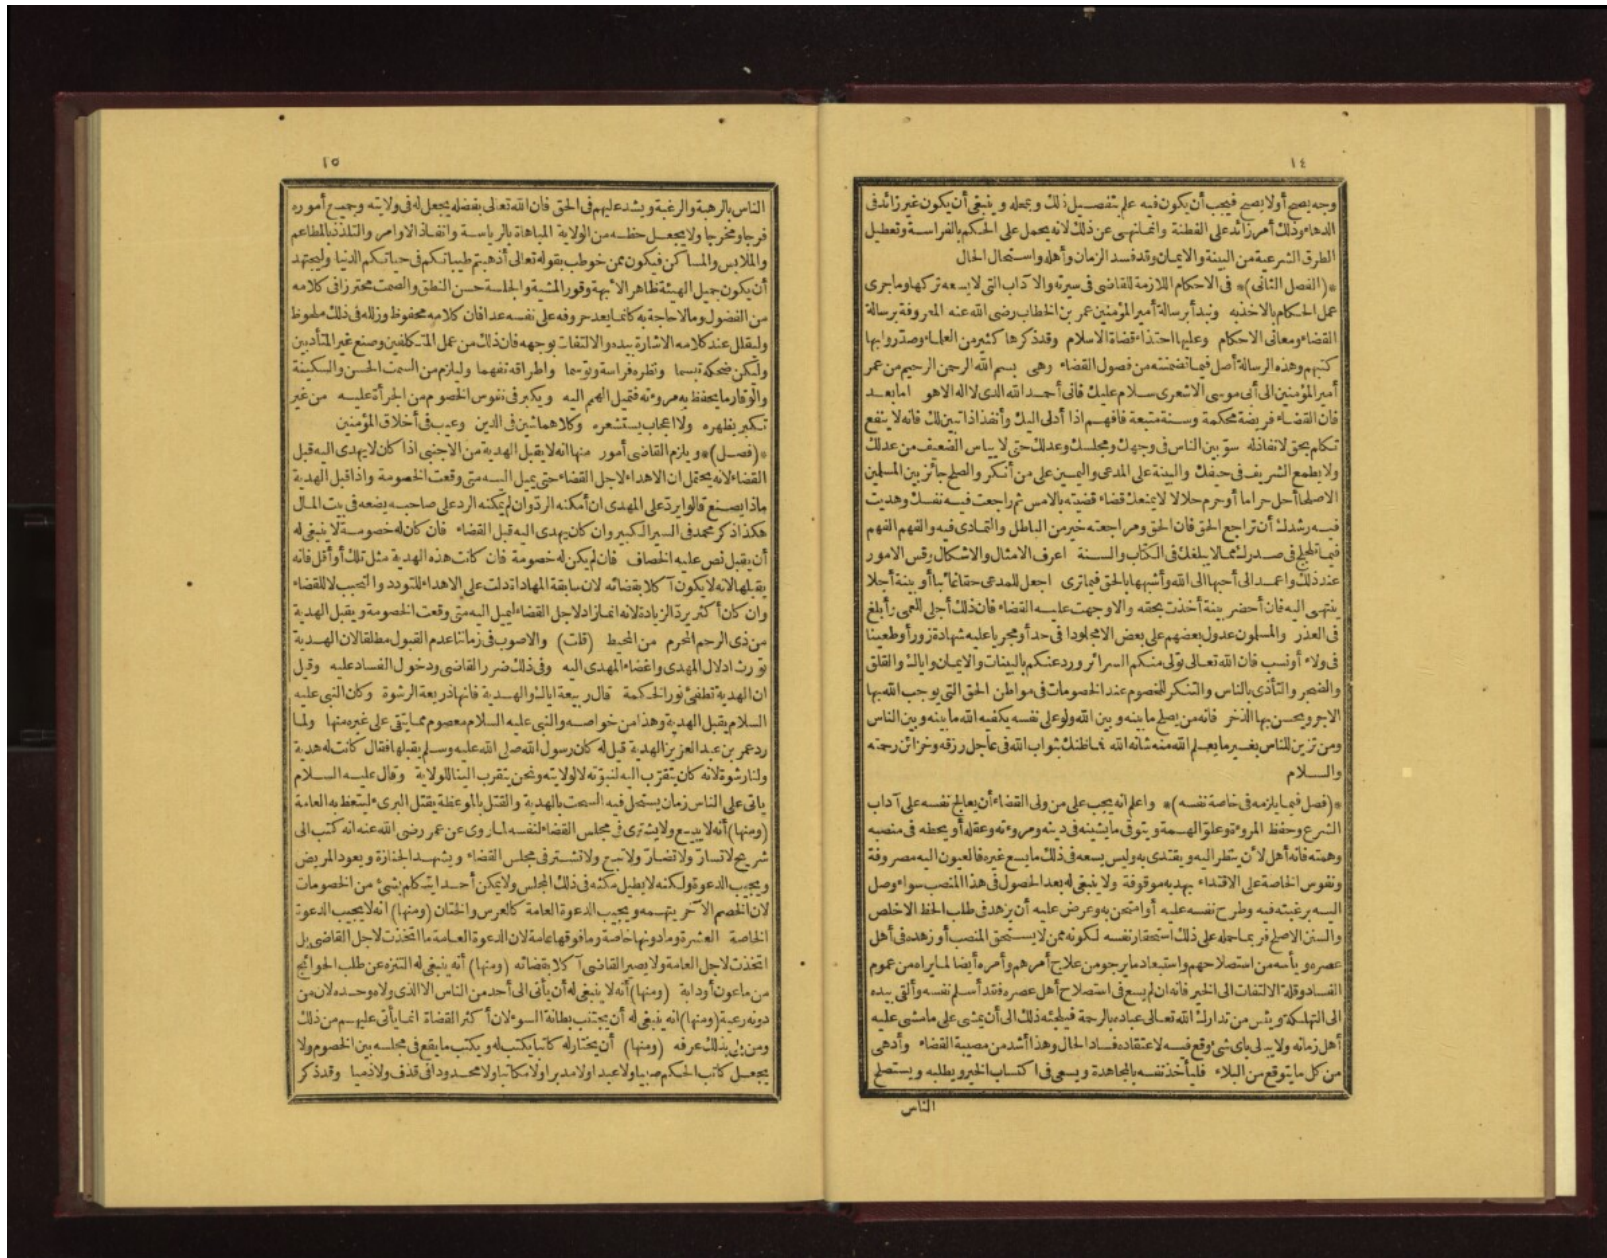 ١٤
وجه يصح أولا يصح فيجب أن يكون فيه علم بتفصيل ذلك وبجمله وينبغى أن يكون غير زائد فى
الدهاء وذلك أمر زائد على الفطنة وانما نهى عن ذلك لانه يحمل على الحكم بالفراسة وتعطيل
الطرق الشرعية من البينة والايمان وقد فسد الزمان وأهله واستحال الحال
*(الفصل الثانى)* فى الاحكام اللازمة للقاضى فى سيرته والآداب التى لا يسعه تركها وما جرى
عمل الحكام بالاخذ به ونبدأ برسالة أمير المؤمنين عمر بن الخطاب رضى الله عنه المعروفة برسالة
القضاء ومعانى الاحكام وعليها احتذاء قضاة الاسلام وقد ذكرها كثير من العلماء وصدروا بها
كتبهم وهذه الرسالة أصل فيما تضمنته من فصول القضاء وهى بسم الله الرحمن الرحيم من عمر
أمير المؤمنين الى أبى موسى الاشعرى سلام عليك فانى أحمد الله الذى لا اله الا هو اما بعد
فان القضاء فريضة محكمة وسنة متبعة فافهم اذا أدلى اليك وأنفذ اذا تبين لك فانه لا ينفع
تكلم بحق لا نفاذ له سوّ بين الناس فى وجهك ومجلسك وعدلك حتى لا ييأس الضعيف من عدلك
ولا يطمع الشريف فى حيفك والبينة على المدعى واليمين على من أنكر والصلح جائز بين المسلمين
الا صلحا أحل حراما أو حرم حلالا لا يمنعك قضاء قضيته بالامس ثم راجعت فيه نفسك وهديت
فيه رشدك أن تراجع الحق فان الحق ومراجعته خير من الباطل والتمادى فيه والفهم الفهم
فيما تلجلج فى صدرك مما لا يبلغك فى الكتاب والسنة اعرف الامثال والاشكال وقس الامور
عند ذلك واعمد الى أحبها الى الله وأشبهها بالحق فيما ترى اجعل للمدعى حقا غائبا أو بينة أجلا
ينتهى اليه فان أحضر بينة أخذت بحقه والا وجهت عليه القضاء فان ذلك أجلى للعمى وأبلغ
فى العذر والمسلمون عدول بعضهم على بعض الا مجلودا فى حد أو مجربا عليه شهادة زور أو ظنينا
فى ولاء أو نسب فان الله تعالى تولى منكم السرائر ورد عنكم بالبينات والايمان واياك والقلق
والضجر والتأذى بالناس والتنكر للخصوم عند الخصومات فى مواطن الحق التى يوجب الله بها
الاجر ويحسن بها الذخر فانه من يصلح ما بينه وبين الله ولو على نفسه يكفيه الله ما بينه وبين الناس
ومن تزين للناس بغير ما يعلم الله منه شانه الله فما ظنك بثواب الله فى عاجل رزقه وخزائن رحمته
والسلام
*(فصل فيما يلزمه فى خاصة نفسه)* واعلم انه يجب على من ولى القضاء أن يعالج نفسه على آداب
الشرع وحفظ المروءة وعلوّ الهمة ويتوقى ما يشينه فى دينه ومروءته وعقله أو يحطه فى منصبه
وهمته فانه أهل لأن ينظر اليه ويقتدى به وليس يسعه فى ذلك ما يسع غيره فالعيون اليه مصروفة
ونفوس الخاصة على الاقتداء بهديه موقوفة ولا ينبغى له بعد الحصول فى هذا المنصب سواء وصل
اليه برغبته فيه وطرح نفسه عليه أو امتحن به وعرض عليه أن يزهد فى طلب الحظ الاخلص
والسنن الاصلح فربما حمله على ذلك استحقار نفسه لكونه ممن لا يستحق المنصب أو زهده فى أهل
عصره ويأسه من استصلاحهم واستبعاد ما يرجو من علاج أمرهم وأمره أيضا لما يراه من عموم
الفساد وقلة الالتفات الى الخير فانه ان لم يسع فى استصلاح أهل عصره فقد أسلم نفسه وألقى بيده
الى التهلكة ويئس من تدارك الله تعالى عباده بالرحمة فيلجئه ذلك الى أن يمشى على ما مشى عليه
أهل زمانه ولا يبالى بأى شئ وقع فيه لاعتقاده فساد الحال وهذا أشد من مصيبة القضاء وأدهى
من كل ما يتوقع من البلاء فليأخذ نفسه بالمجاهدة ويسعى فى اكتساب الخير ويطلبه ويستصلح
الناس
١٥
الناس بالرهبة والرغبة ويشد عليهم فى الحق فان الله تعالى بفضله يجعل له فى ولايته وجميع أموره
فرجا ومخرجا ولا يجعل حظه من الولاية المباهاة بالرياسة وانفاذ الاوامر والتلذذ بالمطاعم
والملابس والمساكن فيكون ممن خوطب بقوله تعالى أذهبتم طيباتكم فى حياتكم الدنيا وليجتهد
أن يكون جميل الهيئة ظاهر الابهة وقور المشية والجلسة حسن النطق والصمت محترزا فى كلامه
من الفضول وما لا حاجة به كانما يعد حروفه على نفسه عدا فان كلامه محفوظ وزلله فى ذلك ملحوظ
وليقلل عند كلامه الاشارة بيده والالتفات بوجهه فان ذلك من عمل المتكلفين وصنع غير المتأدبين
وليكن ضحكه تبسما ونظره فراسة وتوسما واطراقه تفهما وليلزم من السمت الحسن والسكينة
والوقار ما يحفظ به مروءته فتميل الهمم اليه ويكبر فى نفوس الخصوم من الجرأة عليه من غير
تكبر يظهره ولا اعجاب يستشعره وكلاهما شين فى الدين وعيب فى أخلاق المؤمنين
*(فصل)* ويلزم القاضى أمور منها انه لا يقبل الهدية من الاجنبى اذا كان لا يهدى اليه قبل
القضاء لانه يحتمل ان الاهداء لاجل القضاء حتى يميل اليه متى وقعت الخصومة واذا قبل الهدية
ماذا يصنع قالوا يردّ على المهدى ان أمكنه الردّ وان لم يمكنه الرد على صاحبه يضعه فى بيت المال
هكذا ذكر محمد فى السير الكبير وان كان يهدى اليه قبل القضاء فان كان له خصومة لا ينبغى له
أن يقبل نص عليه الخصاف فان لم يكن له خصومة فان كانت هذه الهدية مثل تلك أو أقل فانه
يقبلها لانه لا يكون آكلا بقضائه لان سابقة المهاداة دلت على الاهداء للتودد والتحبب لا للقضاء
وان كان أكثر يردّ الزيادة لانه انما زاد لاجل القضاء ليميل اليه متى وقعت الخصومة ويقبل الهدية
من ذى الرحم المحرم من المحيط (قلت) والاصوب فى زماننا عدم القبول مطلقا لان الهدية
تورث ادلال المهدى واغضاء المهدى اليه وفى ذلك ضرر القاضى ودخول الفساد عليه وقيل
ان الهدية تطفئ نور الحكمة قال ربيعة اياك والهدية فانها ذريعة الرشوة وكان النبى عليه
السلام يقبل الهدية وهذا من خواصه والنبى عليه السلام معصوم مما يتقى على غيره منها ولما
رد عمر بن عبد العزيز الهدية قيل له كان رسول الله صلى الله عليه وسلم يقبلها فقال كانت له هدية
ولنا رشوة لانه كان يتقرّب اليه لنبوّته لا لولايته ونحن يتقرب الينا للولاية وقال عليه السلام
يأتى على الناس زمان يستحل فيه السحت بالهدية والقتل بالموعظة يقتل البرىء ليتعظ به العامة
(ومنها) أنه لا يبيع ولا يشترى فى مجلس القضاء لنفسه لما روى عن عمر رضى الله عنه انه كتب الى
شريح لا تسارّ ولا تضارّ ولا تبع ولا تشتر فى مجلس القضاء ويشهد الجنازة ويعود المريض
ويجيب الدعوة ولكنه لا يطيل مكثه فى ذلك المجلس ولا يمكن أحدا يتكلم بشئ من الخصومات
لان الخصم الآخر يتهمه ويجيب الدعوة العامة كالعرس والختان (ومنها) انه لا يجيب الدعوة
الخاصة العشرة وما دونها خاصة وما فوقها عامة لان الدعوة العامة ما اتخذت لاجل القاضى بل
اتخذت لاجل العامة ولا يصير القاضى آكلا بقضائه (ومنها) أنه ينبغى له التنزه عن طلب الحوائج
من ماعون أو دابة (ومنها) أنه لا ينبغى له أن يأتى الى أحد من الناس الا الذى ولاه وحده لان من
دونه رعية (ومنها) انه ينبغى له أن يجتنب بطانة السوء لان أكثر القضاة انما يأتى عليهم من ذلك
ومن بلى بذلك عرفه (ومنها) أن يختار له كاتبا يكتب له ويكتب ما يقع فى مجلسه بين الخصوم ولا
يجعل كاتب الحكم صبيا ولا عبدا ولا مدبرا ولا مكاتبا ولا محدودا فى قذف ولا ذميا وقد ذكر